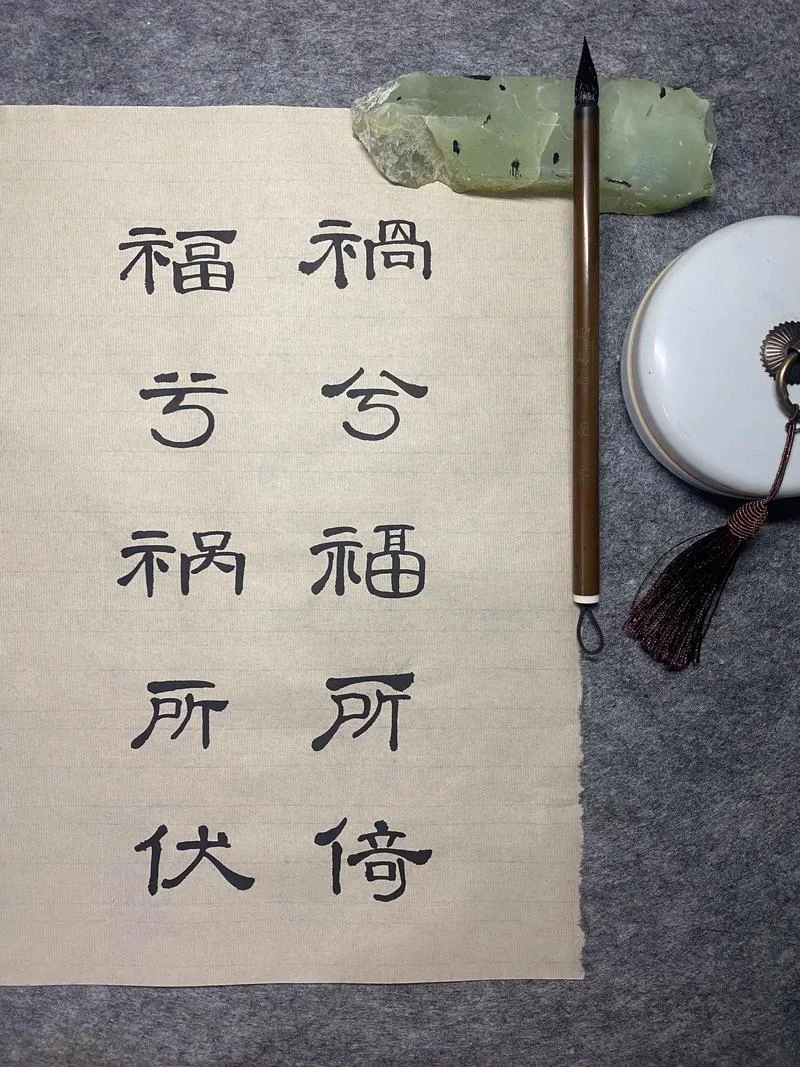 禍兮福所倚
福兮祸所伏